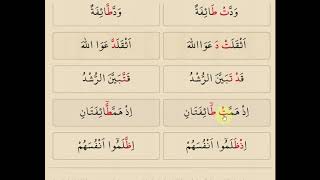 وَدَّتْ طَائِفَةٌ وَدَّطَّائِفَةٌ
اَثْقَلَتْ دَعَوَا اللهَ اَثْقَلَدَّعَوَا اللهَ
قَدْ تَبَيَّنَ الرُّشْدُ قَتَّبَيَّنَ الرُّشْدُ
اِذْ هَمَّتْ طَّآئِفَتَانِ اِذْ هَمَّطَّآئِفَتَانِ
اِذْظَلَمُوا اَنْفُسَهُمْ اِظَّلَمُوا اَنْفُسَهُمْ